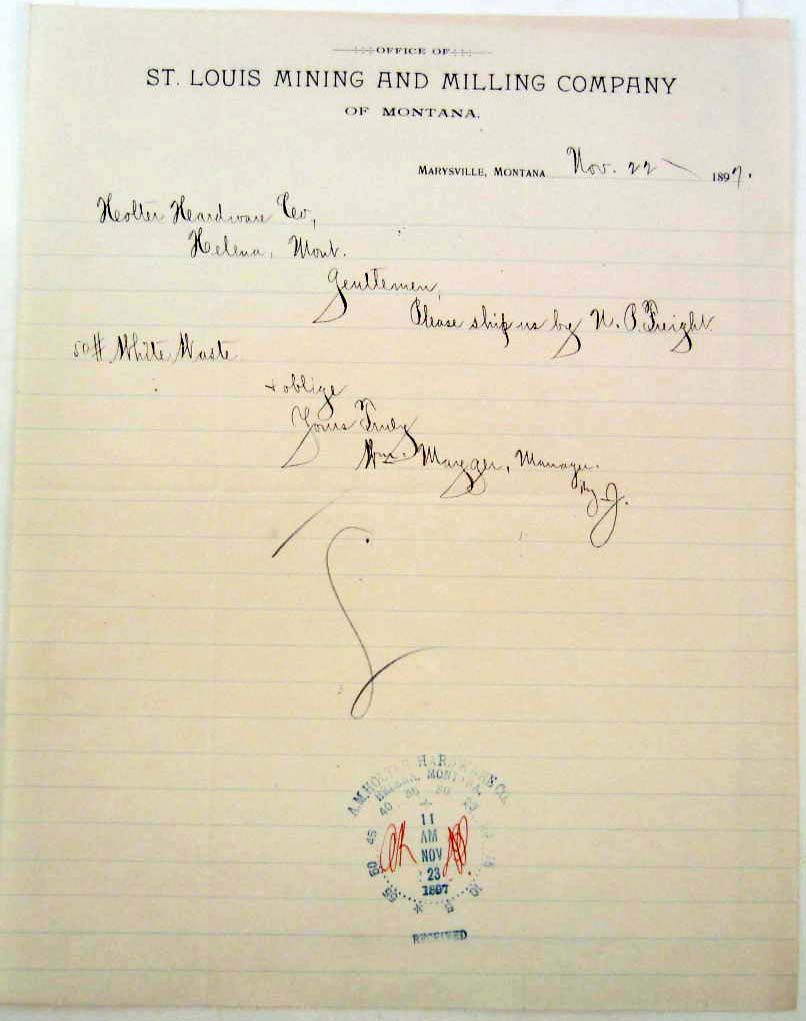 OFFICE OF
ST. LOUIS MINING AND MILLING COMPANY
OF MONTANA.
MARYSVILLE, MONTANA Nov. 22 1897.
Holter Hardware Co,
Helena, Mont.
Gentlemen,
Please ship us by N. P. Freight
50# White Waste
+ oblige
Yours Truly
Wm. Mayger, Manager.
By J.
A.M. HOLTER HARDWARE CO.
HELENA, MONTANA.
11
AM
NOV
23
1897
OK
RECEIVED